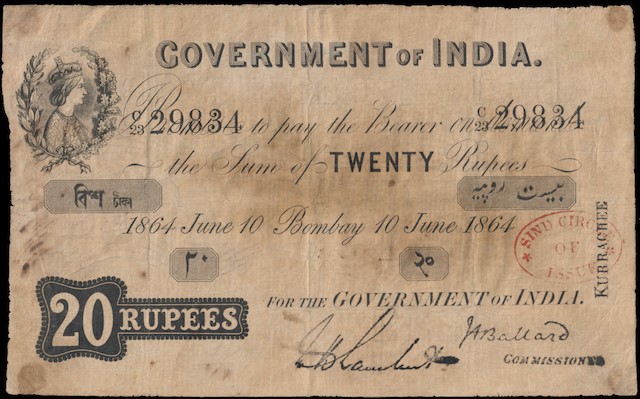 GOVERNMENT OF INDIA.
C/23 29834 C/23 29834
Promise to pay the Bearer on demand
the Sum of TWENTY Rupees
বিংশ টাকা بیست روپیہ
1864 June 10 Bombay 10 June 1864
SIND CIRCLE OF ISSUE
KURRACHEE
٢٠ २०
FOR THE GOVERNMENT OF INDIA.
20 RUPEES
J A Ballard
COMMISSIONER